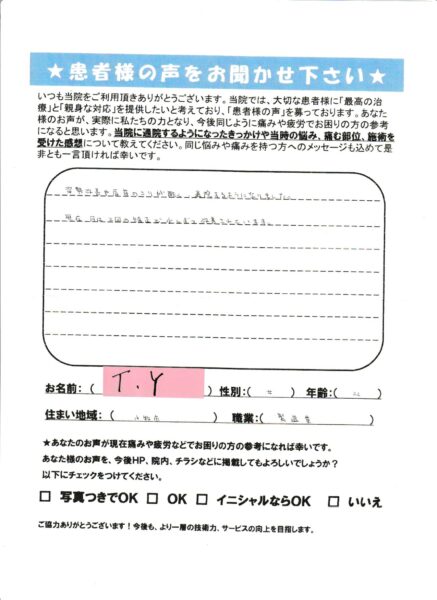 ★患者様の声をお聞かせ下さい★
いつも当院をご利用頂きありがとうございます。当院では、大切な患者様に「最高の治
療」と「親身な対応」を提供したいと考えており、「患者様の声」を募っております。あなた
様のお声が、実際に私たちの力となり、今後同じように痛みや疲労でお困りの方の参考
になると思います。当院に通院するようになったきっかけや当時の悩み、痛む部位、施術を
受けた感想について教えてください。同じ悩みや痛みを持つ方へのメッセージも込めて是
非とも一言頂ければ幸いです。
お名前：（ T.Y ） 性別：（ ） 年齢：（ ）
住まい地域：（ ） 職業：（ ）
★あなたのお声が現在痛みや疲労などでお困りの方の参考になれば幸いです。
あなた様のお声を、今後HP、院内、チラシなどに掲載してもよろしいでしょうか？
以下にチェックをつけてください。
□ 写真つきでOK □ OK □ イニシャルならOK □ いいえ
ご協力ありがとうございます！今後も、より一層の技術力、サービスの向上を目指します。